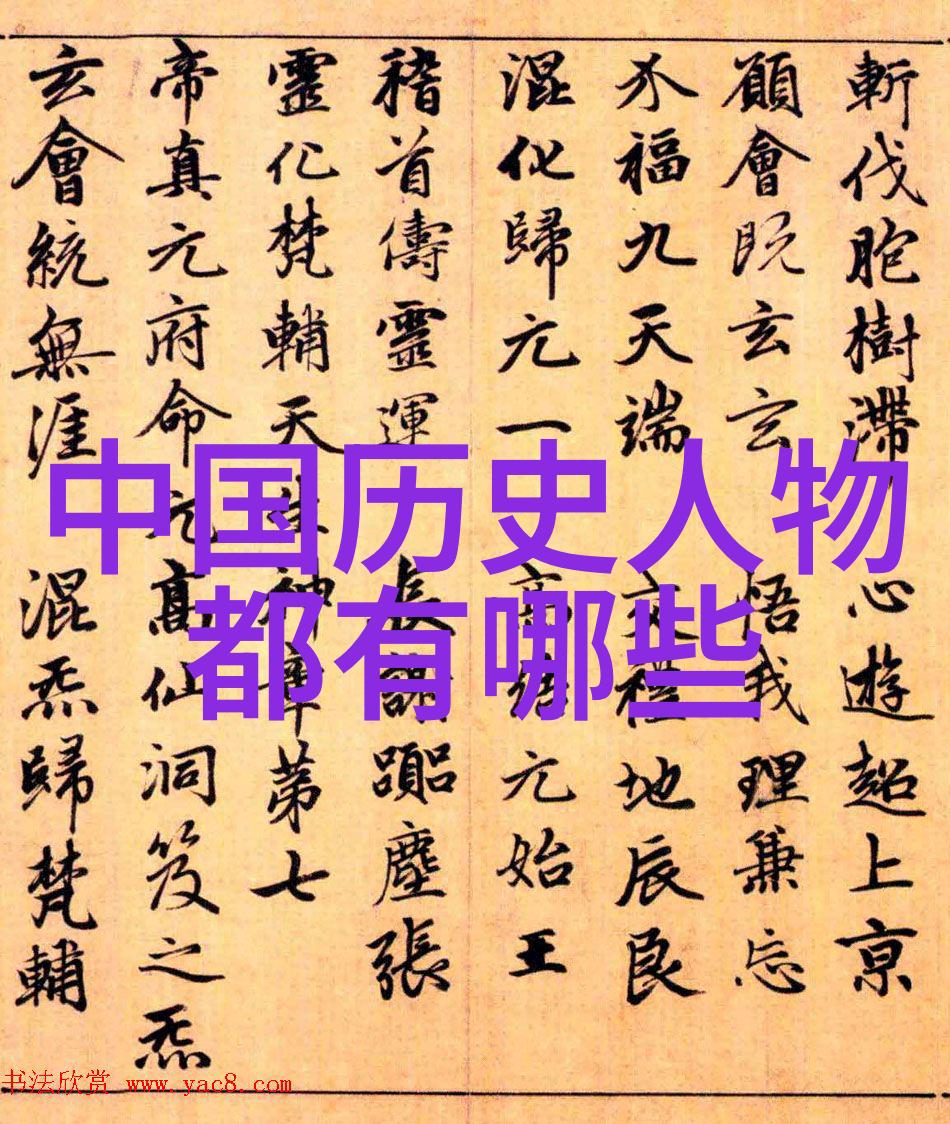 中国历史人物
都有哪些
斬伐胞樹滯心遊超上京
願會既玄玄悟我理兼忘
介福九天端交禮地辰良
混化歸元一高結元始王
稽首儔靈運長謠躡塵張
靈化梵輔天生神章第七
帝真元府命元高仙洞笈之炁
玄會統無涯混炁歸梵輔
书法欣赏 www.yac8.com